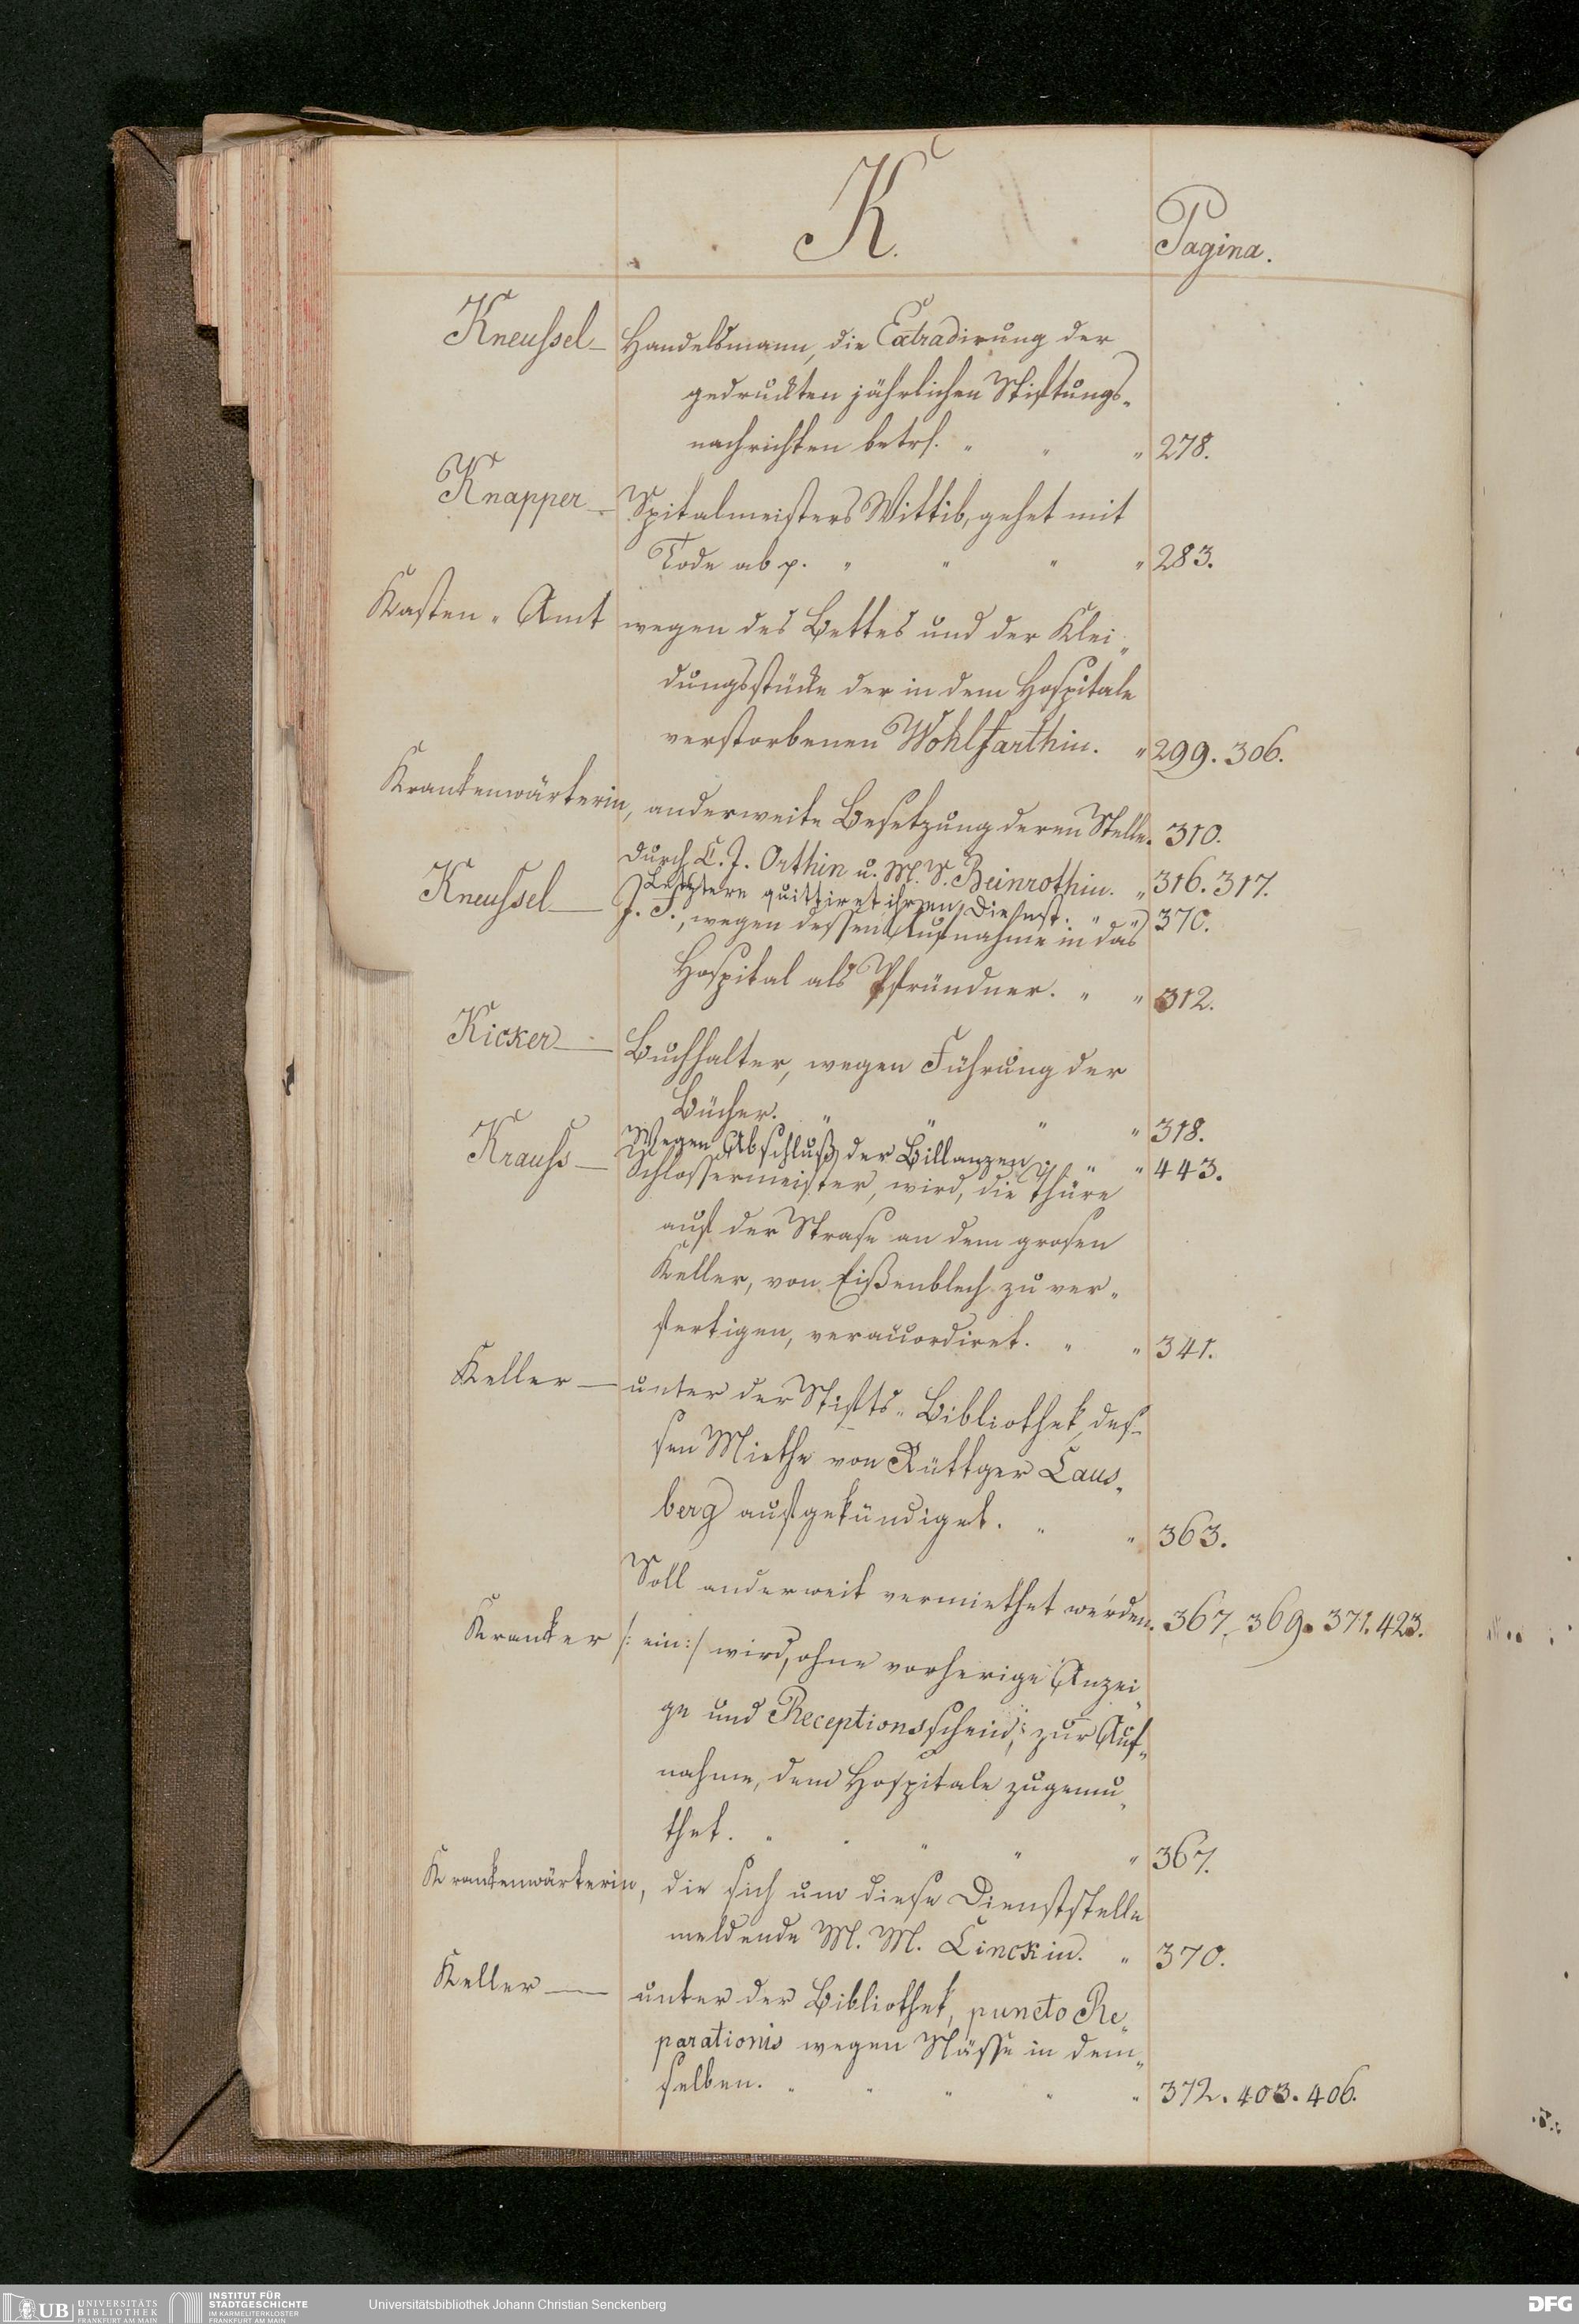 K.
Pagina.
Kneussel– Handelsmann, die Extradirung der
gedruckten jährlichen Stiftungs„
nachrichten betrf. „ „ „ 278.
Knapper– Spitalmeisters Wittib, gehet mit
Tode ab p. „ „ „ „ 283.
Kasten„Amt wegen des Bettes und der Klei„
dungsstücke der in dem Hospitale
verstorbenen Wohlfarthin. „ 299. 306.
Krankenwärterin, anderweite Besetzung deren Stelle. 310.
durch C. J. Orthin u. M. S. Beinrothin. „ 316. 317.
Letztere quittiret ihren Dienst. „ „ 370.
Kneussel— J. F., wegen dessen Aufnahme in das
Hospital als Pfründner. „ „ 312.
Kicker— Buchhalter, wegen Führung der
Bücher. „ „ „ „ 318.
Wegen Abschluß der Billanzen. „ „ 443.
Krauss– Schlossermeister, wird, die Thüre
auf der Strase an dem grosen
Keller, von Eißenblech zu ver„
fertigen, veraccordiret. „ „ 341.
Keller— unter der Stifts„Bibliothek, des„
sen Miethe von Rüttger Laus„
berg aufgekündiget. „ „ 363.
Soll anderweit vermiethet werden. 367. 369. 371. 423.
Kranker /: ein :/ wird, ohne vorherige Anzei„
ge und Receptionsschein, zur Auf„
nahme, dem Hospitale zugemu„
thet. „ „ „ „ „ 367.
Krankenwärterin, die sich um diese Dienststelle
meldende M. M. Linckin. „ 370.
Keller— unter der Bibliothek, puncto Re„
parationis wegen Nässe in dem„
selben. „ „ „ „ „ 372. 403. 406.
UB UNIVERSITÄTS
BIBLIOTHEK
FRANKFURT AM MAIN
INSTITUT FÜR
STADTGESCHICHTE
IM KARMELITERKLOSTER
FRANKFURT AM MAIN
Universitätsbibliothek Johann Christian Senckenberg
DFG